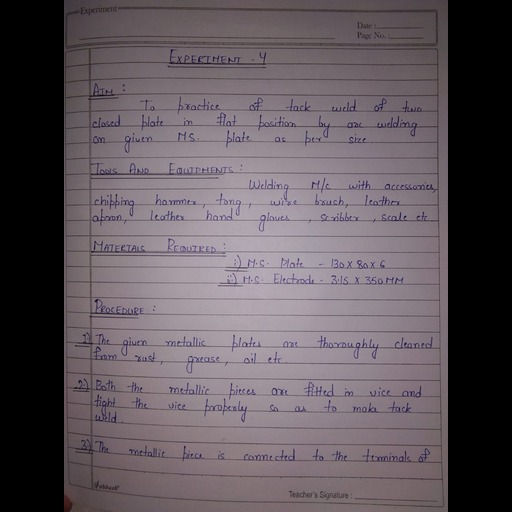 Experiment
Date :
Page No. :
EXPERIMENT - 4
AIM :
To practice of tack weld of two
closed plate in flat position by arc welding
on given MS. plate as per size
TOOLS AND EQUIPMENTS :
Welding M/c with accessories,
chipping hammer, tong, wire brush, leather
apron, leather hand gloves, scribber, scale etc
MATERIALS REQUIRED :
i) M.S. Plate - 130 X 80 X 6
ii) M.S. Electrode - 3.15 X 350 MM
PROCEDURE :
1) The given metallic plates are thoroughly cleaned
from rust, grease, oil etc.
2) Both the metallic pieces are fitted in vice and
tight the vice properly so as to make tack
weld.
3) The metallic piece is connected to the terminals of
Teacher's Signature :